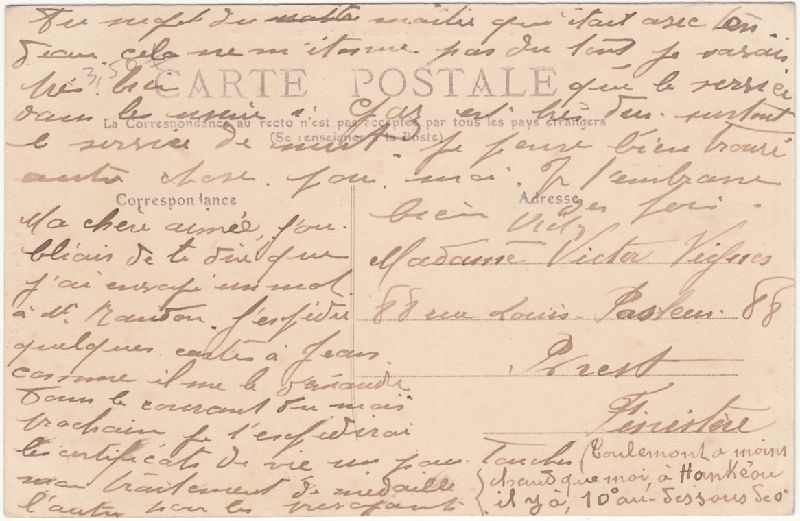 Au sujet du maitre qui était avec ton
deau, cela ne m'étonne pas du tout je savais
très bien que le service
3,50
CARTE POSTALE
dans les usines à gaz est très dur surtout
La Correspondance au recto n'est pas acceptée par tous les pays étrangers
(Se renseigner à la Poste)
le service de nuit. Je pense bien trouvé
autre chose pour moi. Je t'embrasse
bien des fois.
Victor
Correspondance
Adresse
Ma chère aimée, j'ou-
bliais de te dire que
j'ai envoyé un mot
à Mr. Raudon. J'expédie
quelques cartes à Jean
comme il me le demande
Dans le courant du mois
prochain je t'expédierai
les certificats de vie un pour Toucher
mon traitement de médaille
l'autre pour les
Madame Victor Vignes
88 rue Louis Pasteur 88
Brest
Finistère
Coulemont a moins
chaud que moi, à Hankéou
il y a, 10° au-dessous de 0